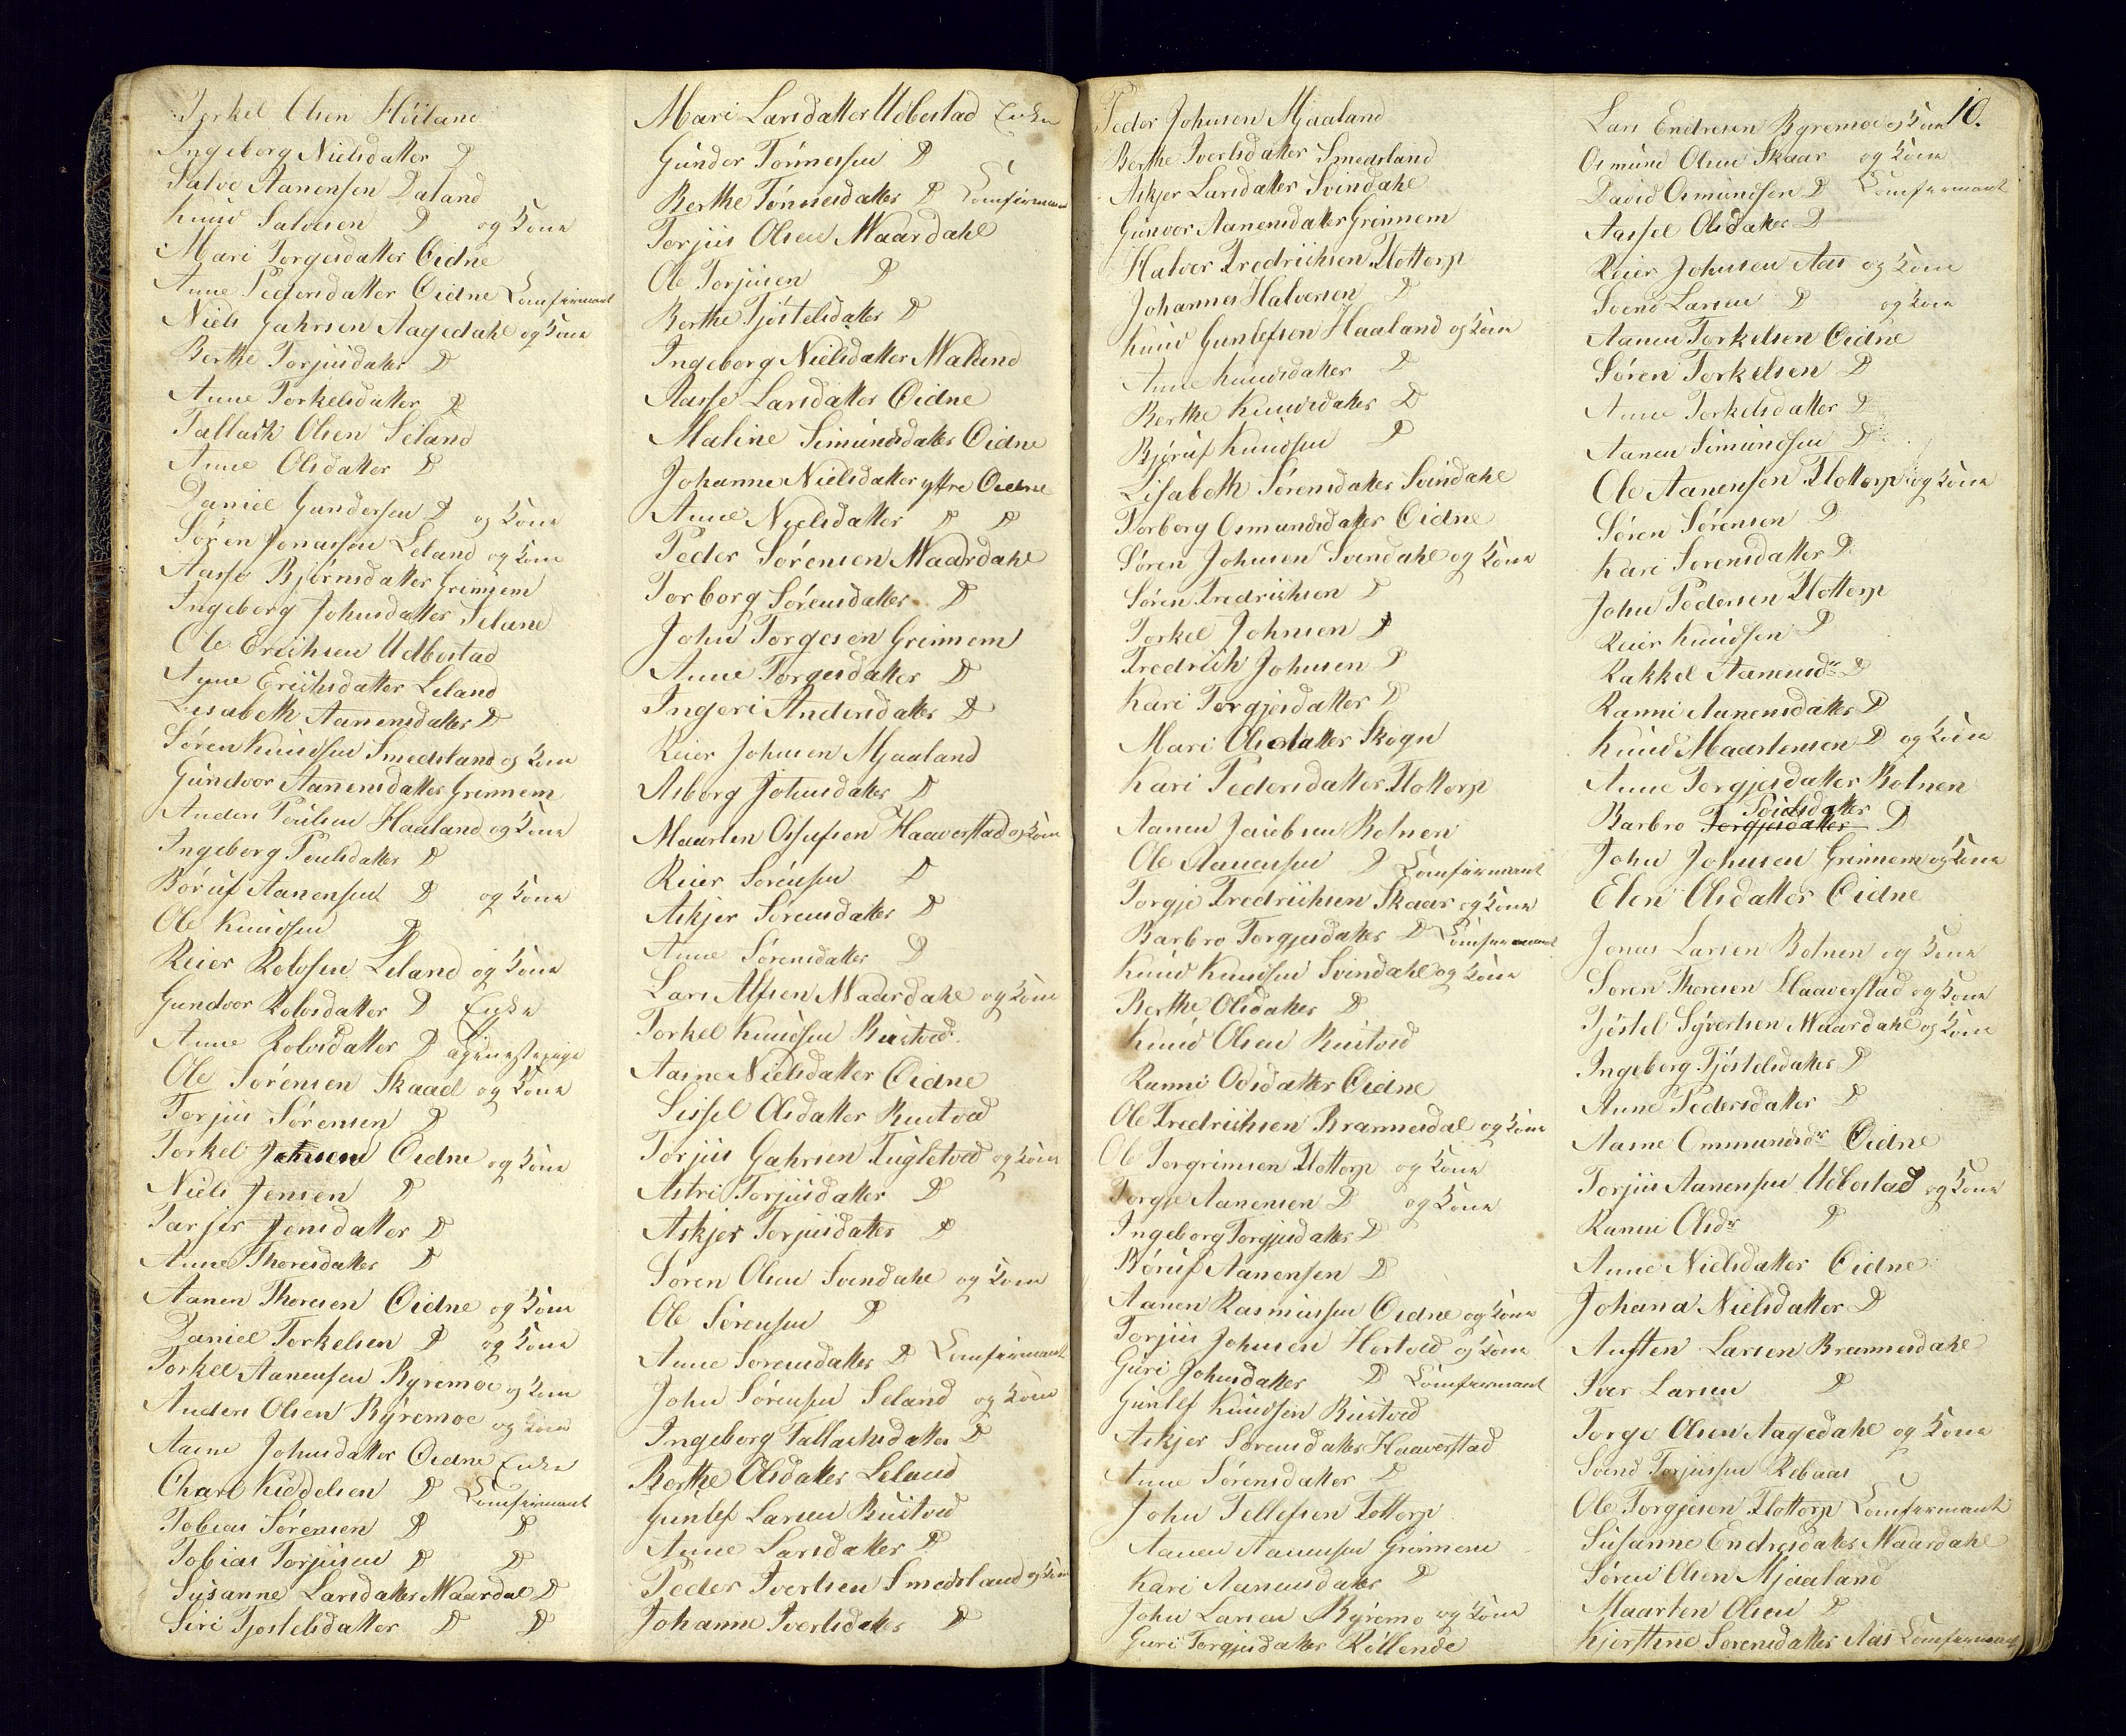 Torkel Olsen Höiland
Ingeborg Nielsdatter D
Salve Aanensen Daland
Knud Salvesen D og Kone
Mari Torgesdatter Öidne
Anne Pedersdatter Öidne Comfirmant
Niels Gahrsen Aagedahl og Kone
Berthe Torjusdatter D
Anne Torkelsdatter D
Tallask Olsen Leland
Anne Olsdatter D
Daniel Gundersen D og Kone
Sören Jonassen Leland og Kone
Aasse Björnsdatter Grimnem
Ingeborg Johnsdatter Leland
Ole Erichsen Udbostad
Anne Erichsdatter Leland
Lisabeth Aanensdatter D
Sören Knudsen Smedsland og Kone
Gundvor Aanensdatter Grinnem
Anders Poulsen Haaland og Kone
Ingeborg Poulsdatter D
Böruf Aanensen D og Kone
Ole Knudsen D
Reier Rolvsen Leland og Kone
Gundvor Rolvsdatter D Enke
Anne Rolvsdatter D
Ole Sörensen Skaael og Kone
Torjus Sörensen D
Torkel Johnsen Öidne og Kone
Niels Jensen D
Tarjer Jensdatter D
Anne Thoresdatter D
Aanen Thoresen Öidne og Kone
Daniel Torkelsen D og Kone
Torkel Aanensen Byremoe og Kone
Anders Olsen Byremoe og Kone
Aasne Johnsdatter Öidne Enke
Charl Kiddelsen D Comfirmant
Tobias Sörensen D D
Tobias Torjusen D D
Susanne Larsdatter Maardal D
Siri Tjostelsdatter D D
Mari Larsdatter Udbostad Enke
Gunder Tönnessen D
Berthe Tönnesdatter D Comfirmant
Torjus Olsen Maardahl
Ole Torjusen D
Berthe Tjöstelsdatter D
Ingeborg Nielsdatter Maland
Aasse Larsdatter Öidne
Maline Simundsdatter Öidne
Johanne Nielsdatter yttre Öidne
Anne Nielsdatter D D
Peder Sörensen Maardahl
Torborg Sörensdatter D
John Torgesen Grinnem
Anne Torgesdatter D
Ingeri Andersdatter D
Reier Johnsen Mjaaland
Asborg Johnsdatter D
Maarten Ossufsen Haaverstad og Kone
Reier Sörensen D
Askjer Sörensdatter D
Anne Sörensdatter D
Lars Alfsen Maardahl og Kone
Torkel Knudsen Bustved
Aasne Nielsdatter Öidne
Sissel Olsdatter Bustved
Torjus Gahrsen Fugletved og Kone
Astri Torjusdatter D
Askjer Torjusdatter D
Sören Olsen Svendahl og Kone
Ole Sörensen D
Anne Sörensdatter D Comfirmant
John Sörensen Leland og Kone
Ingeborg Tallaksdatter D
Berthe Olsdatter Leland
Gunlef Larsen Bustved
Anne Larsdatter D
Peder Iverlsen Smedsland og Kone
Johanne Iverlsdatter D
Peder Johnsen Mjaaland
Berthe Iverlsdatter Smedsland
Askjer Larsdatter Svindahl
Gunvor Aanensdatter Grinnem
Halvor Fredrichsen Flottorp
Johannes Halvorsen D
Knud Gunlefsen Haaland og Kone
Anne Knudsdatter D
Berthe Knudsdatter D
Björuf Knudsen D
Lisabeth Sörensdatter Svindahl
Torborg Osmundsdatter Öidne
Sören Johnsen Svendahl og Kone
Sören Fredrichsen D
Torkel Johnsen D
Fredrich Johnsen D
Kari Torgjesdatter D
Mari Olsdatter Skogn
Kari Pedersdatter Flottorp
Aanen Jacobsen Botnen
Ole Aanensen D Comfirmant
Torgje Fredrichsen Skaar og Kone
Barbro Torgjesdatter D Comfirmant
Knud Knudsen Svindahl og Kone
Berthe Olsdatter D
Knud Olsen Bustved
Ranni Odsdatter Öidne
Ole Fredrichsen Brannesdal og Kone
Ole Torgrimsen Flottorp og Kone
Torge Aanensen D og Kone
Ingeborg Torgjesdatter D
Böruf Aanensen D
Aanen Rasmussen Öidne og Kone
Torjus Johnsen Hestved og Kone
Guri Johnsdatter D Comfirmant
Gunlef Knudsen Bustved
Askjer Sörensdatter Haaverstad
Anne Sörensdatter D
John Tellefsen Flottorp
Aanen Aanensen Grinnem
Kari Aanensdatter D
John Larsen Byremo og Kone
Guri Torgjusdatter Röllende
10.
Lars Endresen Byremoe og Kone
Osmund Olsen Skaar og Kone
David Osmundsen D Comfirmant
Aassel Olsdatter D
Reier Johnsen Aas og Kone
Svend Larsen D og Kone
Aanen Torkelsen Öidne
Sören Torkelsen D
Anne Torkelsdatter D
Aanen Simundsen D
Ole Aanensen Flottorp og Kone
Sören Sörensen D
Kari Sorensdatter D
John Pedersen Flottorp
Reier Knudsen D
Rakkel Aanensdr D
Ranni Aanensdatter D
Knud Maartensen D og Kone
Anne Torgjesdatter Botnen
Poulsdatter
Barbro Torgjesdatter D
John Johnsen Grinnem og Kone
Elen Olsdatter Öidne
Jonas Larsen Botnen og Kone
Sören Thoresen Haaverstad og Kone
Tjöstel Syvertsen Maardahl og Kone
Ingeborg Tjöstelsdatter D
Anne Pedersdatter D
Aasne Ommundsdr Öidne
Torjus Aanensen Udbostad og Kone
Ranni Olsdr D
Anne Nielsdatter Öidne
Johana Nielsdatter D
Austen Larsen Brannesdahl
Iver Larsen D
Torge Olsen Aagedahl og Kone
Svend Torjussen Rebaas
Ole Torgjesen Flottorp Comfirmant
Susanne Endresdatter Maardahl
Sören Olsen Mjaaland
Maarten Olsen D
Kjerstine Sorensdatter Aas Comfirmant